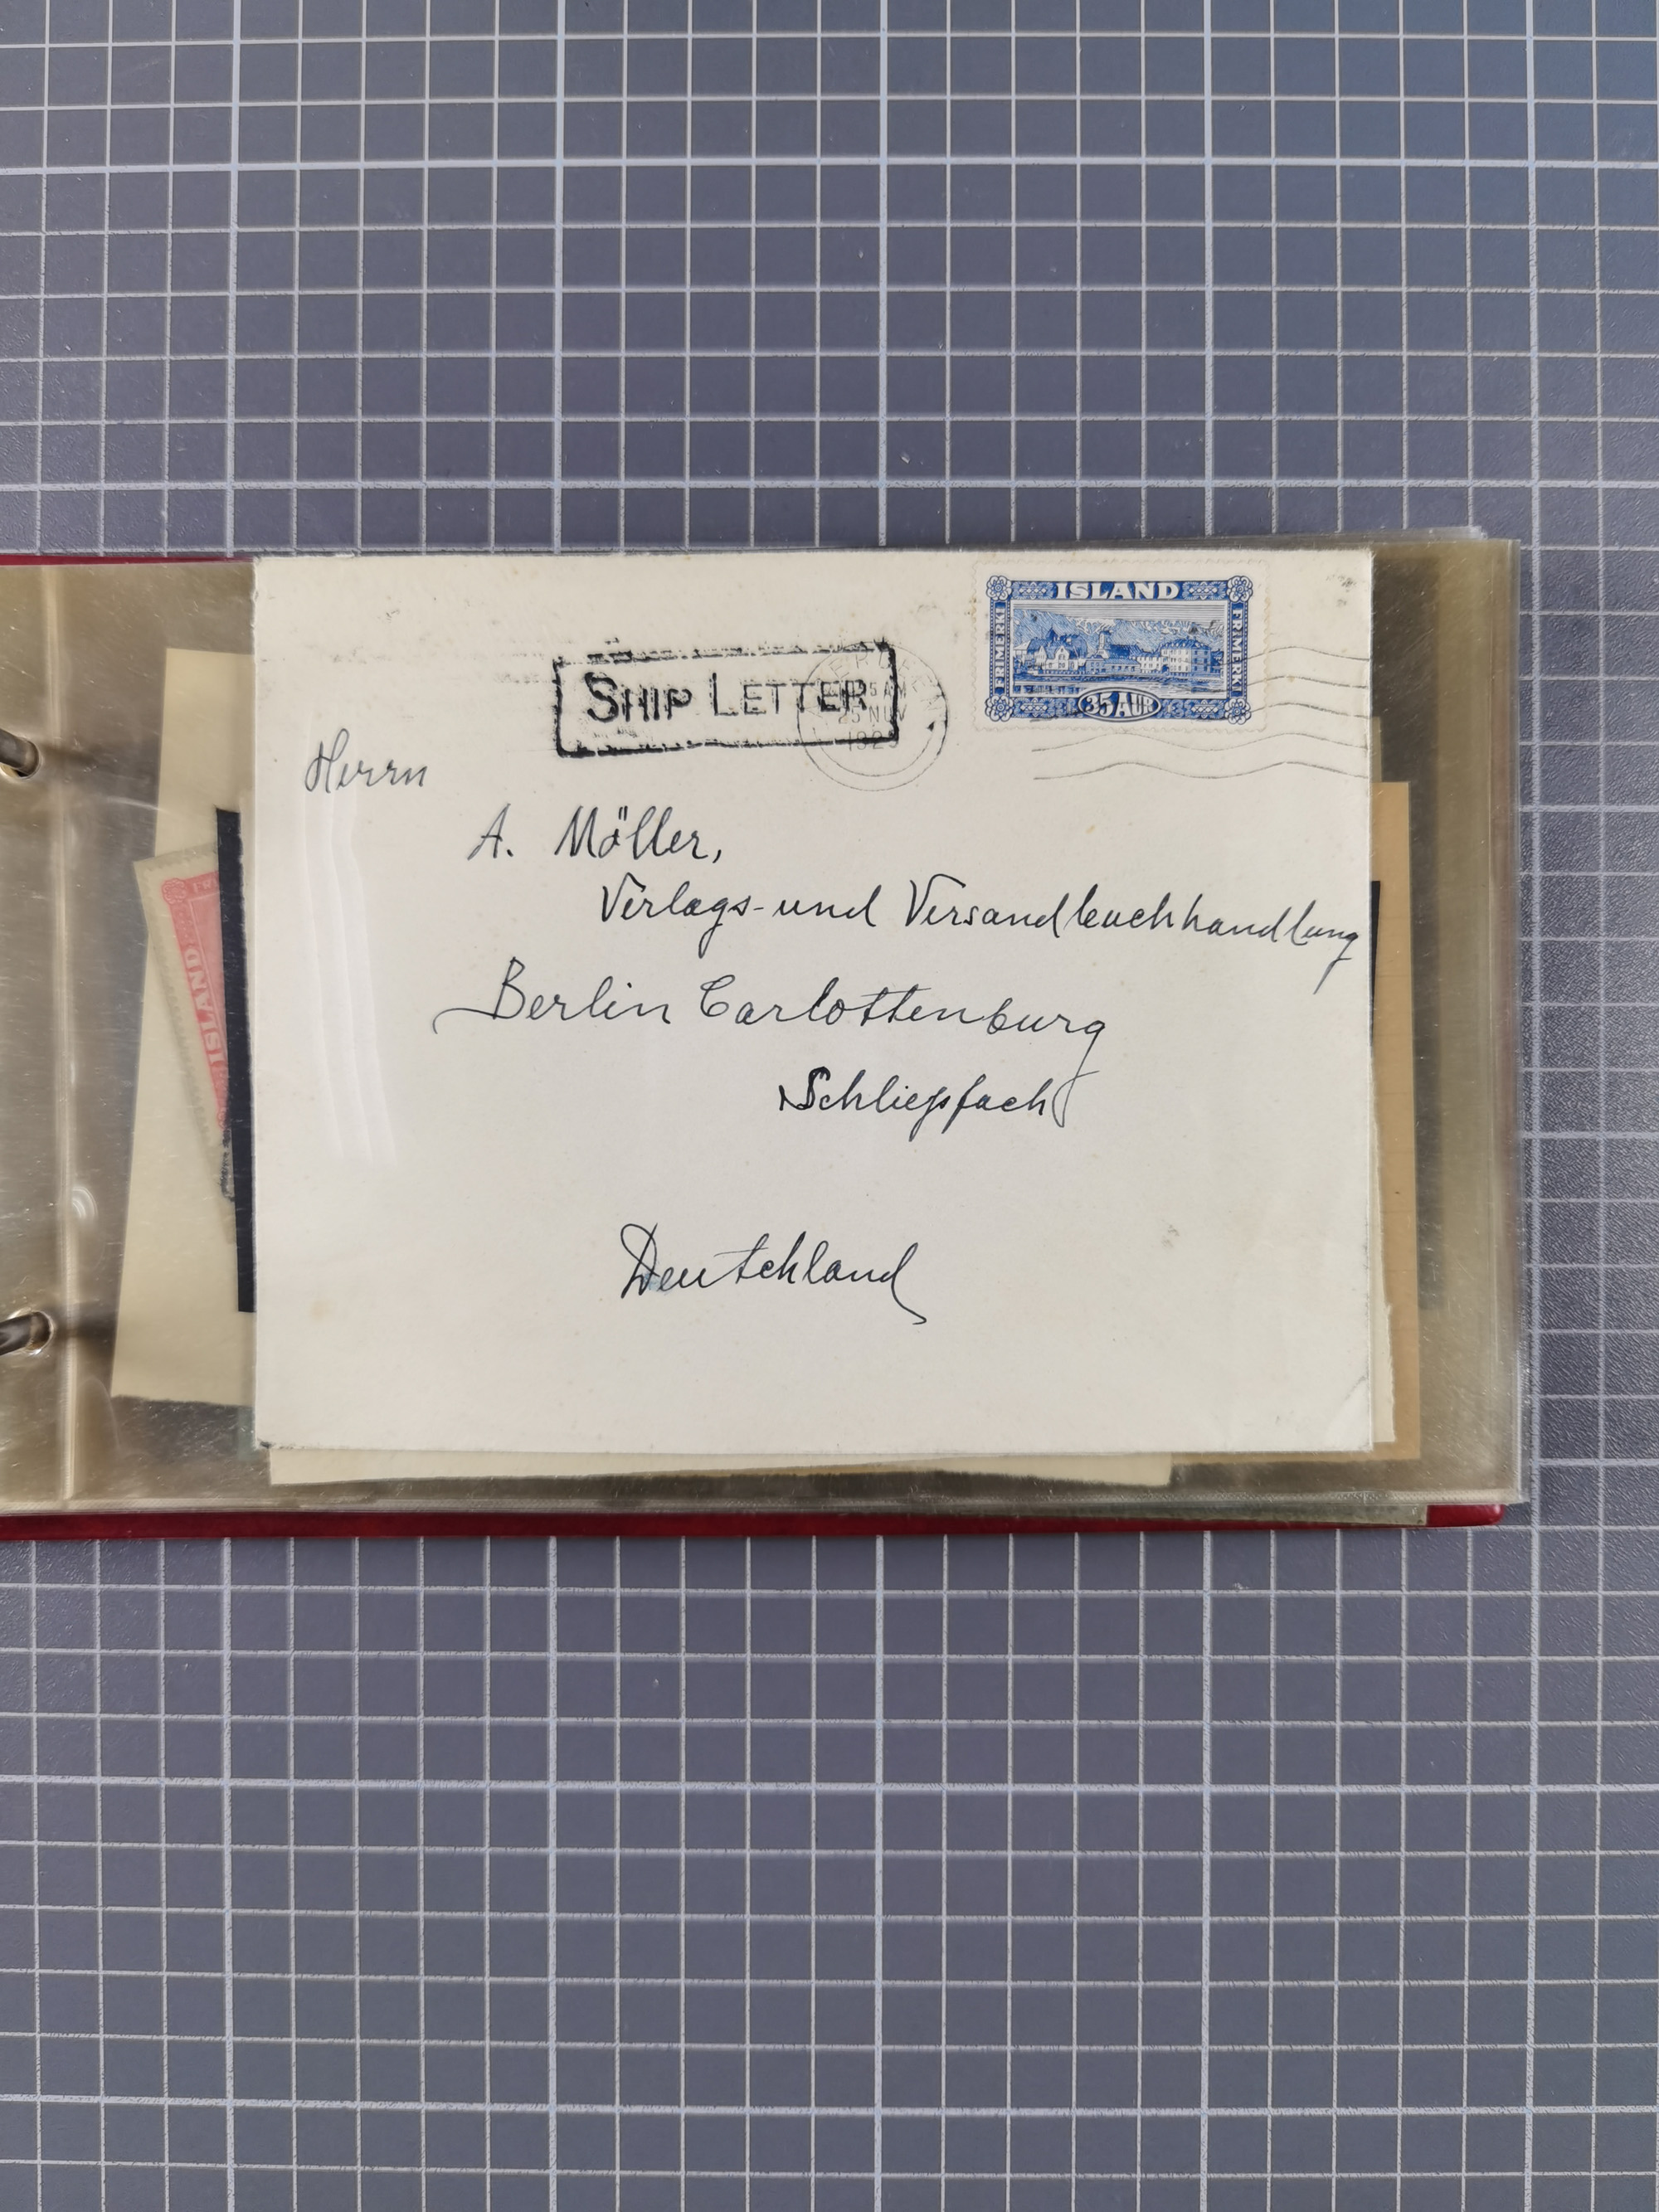 ISLAND
FRIMERKI
FRIMERKI
35 AUR
SHIP LETTER
NOV
Herrn
A. Möller,
Verlags- und Versandbuchhandlung
Berlin Carlottenburg
Schliessfach
Deutchland
ISLAND